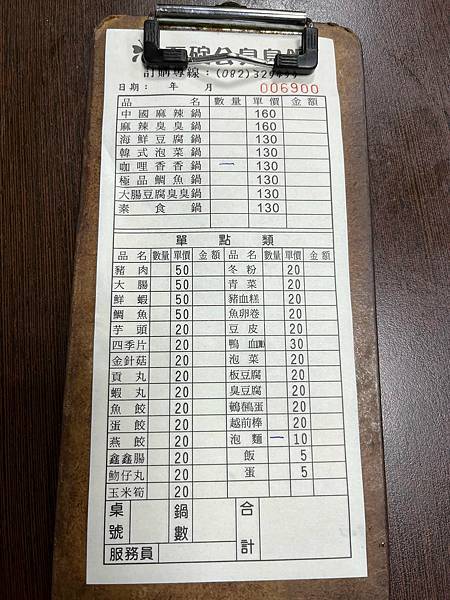 碗公臭臭鍋
訂購專線：(082)329
日期： 年 月 006900
品名 數量 單價 金額
中國麻辣鍋 160
麻辣臭臭鍋 160
海鮮豆腐鍋 130
韓式泡菜鍋 130
咖哩香香鍋 一 130
極品鯛魚鍋 130
大腸豆腐臭臭鍋 130
素食鍋 130
單點類
品名 數量 單價 金額 品名 數量 單價 金額
豬肉 50 冬粉 20
大腸 50 青菜 20
鮮蝦 50 豬血糕 20
鯛魚 50 魚卵卷 20
芋頭 20 豆皮 20
四季片 20 鴨血 30
金針菇 20 泡菜 20
貢丸 20 板豆腐 20
蝦丸 20 臭豆腐 20
魚餃 20 鵪鶉蛋 20
蛋餃 20 越前棒 20
燕餃 20 泡麵 一 10
鑫鑫腸 20 飯 5
魩仔丸 20 蛋 5
玉米筍 20
桌號 鍋數 合計
服務員